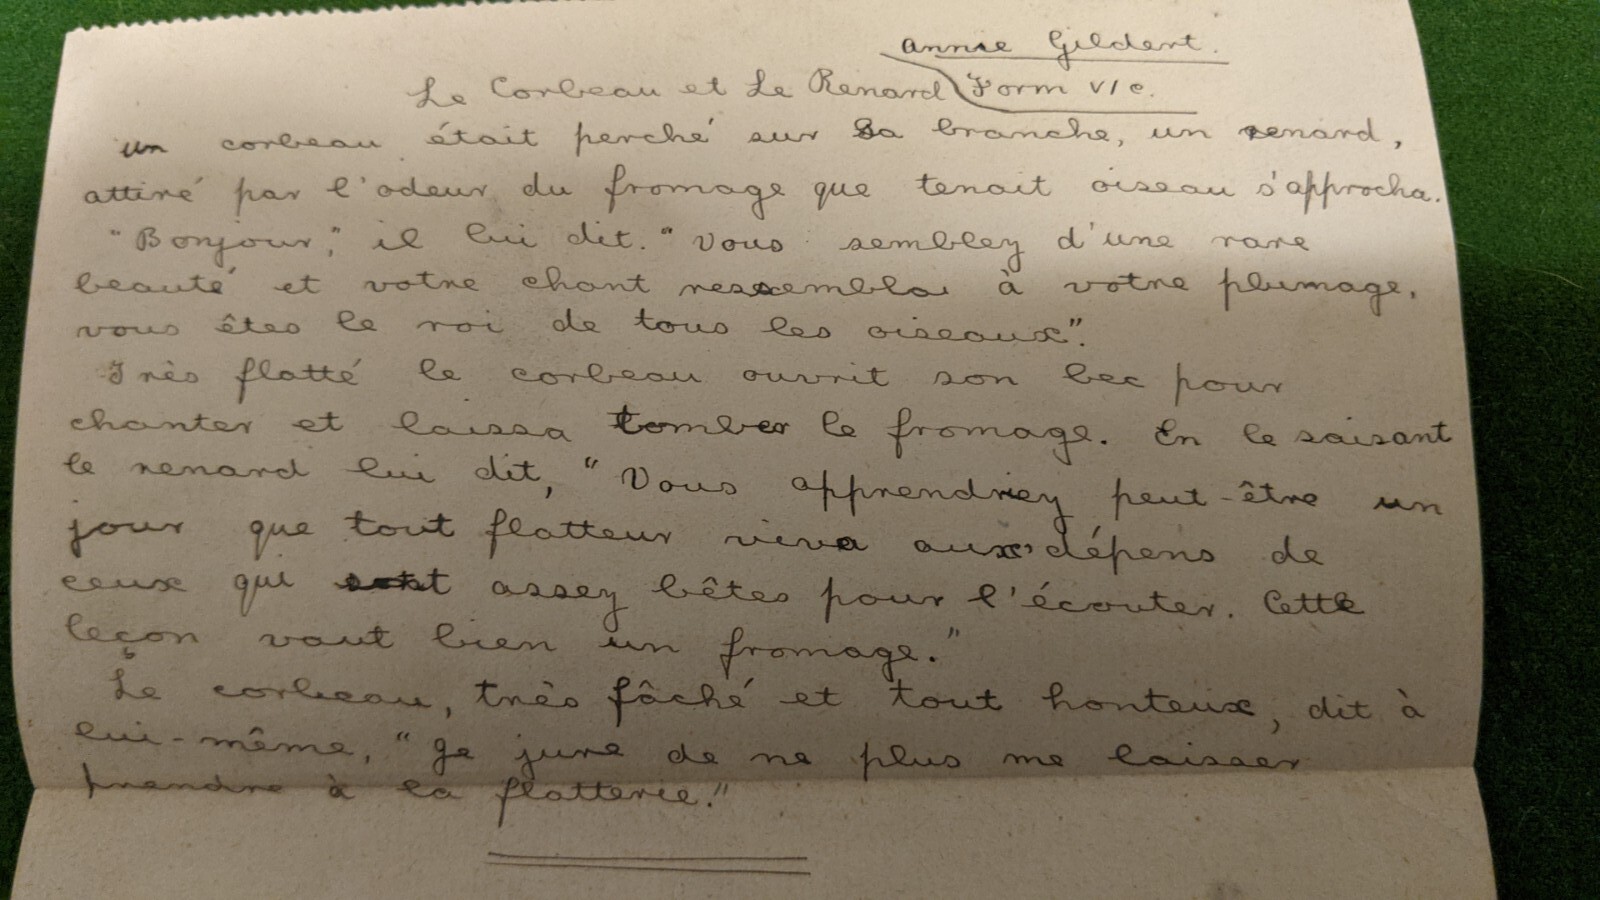 Annie Gildert.
Le Corbeau et Le Renard Form VI c.
un corbeau était perché sur sa branche, un renard,
attiré par l'odeur du fromage que tenait oiseau s'approcha.
"Bonjour," il lui dit. "Vous semblez d'une rare
beauté et votre chant ressembla à votre plumage,
vous êtes le roi de tous les oiseaux".
Très flatté le corbeau ouvrit son bec pour
chanter et laissa tomber le fromage. En le saisant
le renard lui dit, "Vous apprendriez peut-être un
jour que tout flatteur viva aux dépens de
ceux qui sont assez bêtes pour l'écouter. Cette
leçon vaut bien un fromage."
Le corbeau, très fâché et tout honteux, dit à
lui-même, "Je jure de ne plus me laisser
prendre à la flatterie."